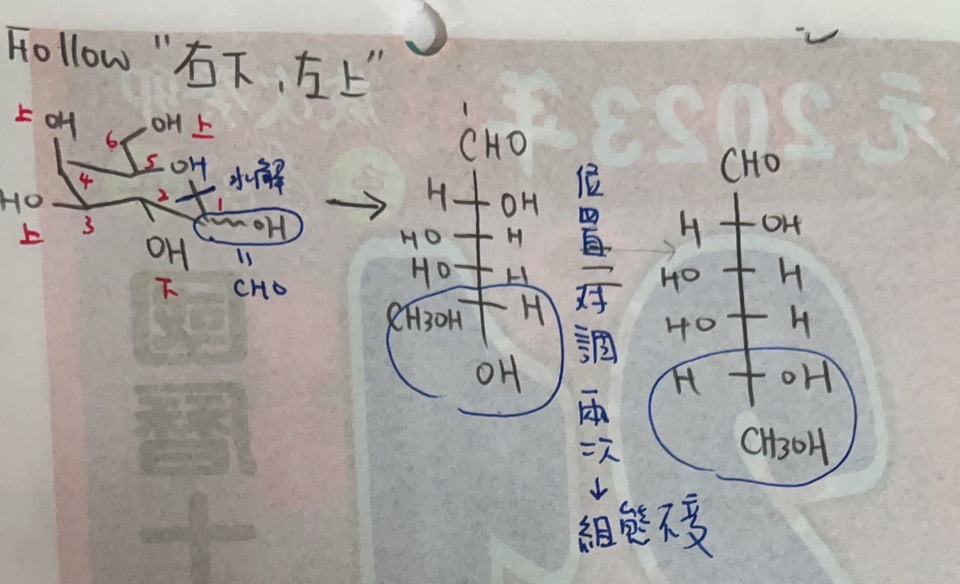 Follow "右下,左上"
上 OH
OH 上
6
5 OH
4
水解
2
1
HO
3
OH
上
OH
下
CHO
CHO
H OH
HO H
HO H
CH3OH H
OH
位置對調兩次
↓
組態不變
CHO
H OH
HO H
HO H
H OH
CH3OH
元 2023年